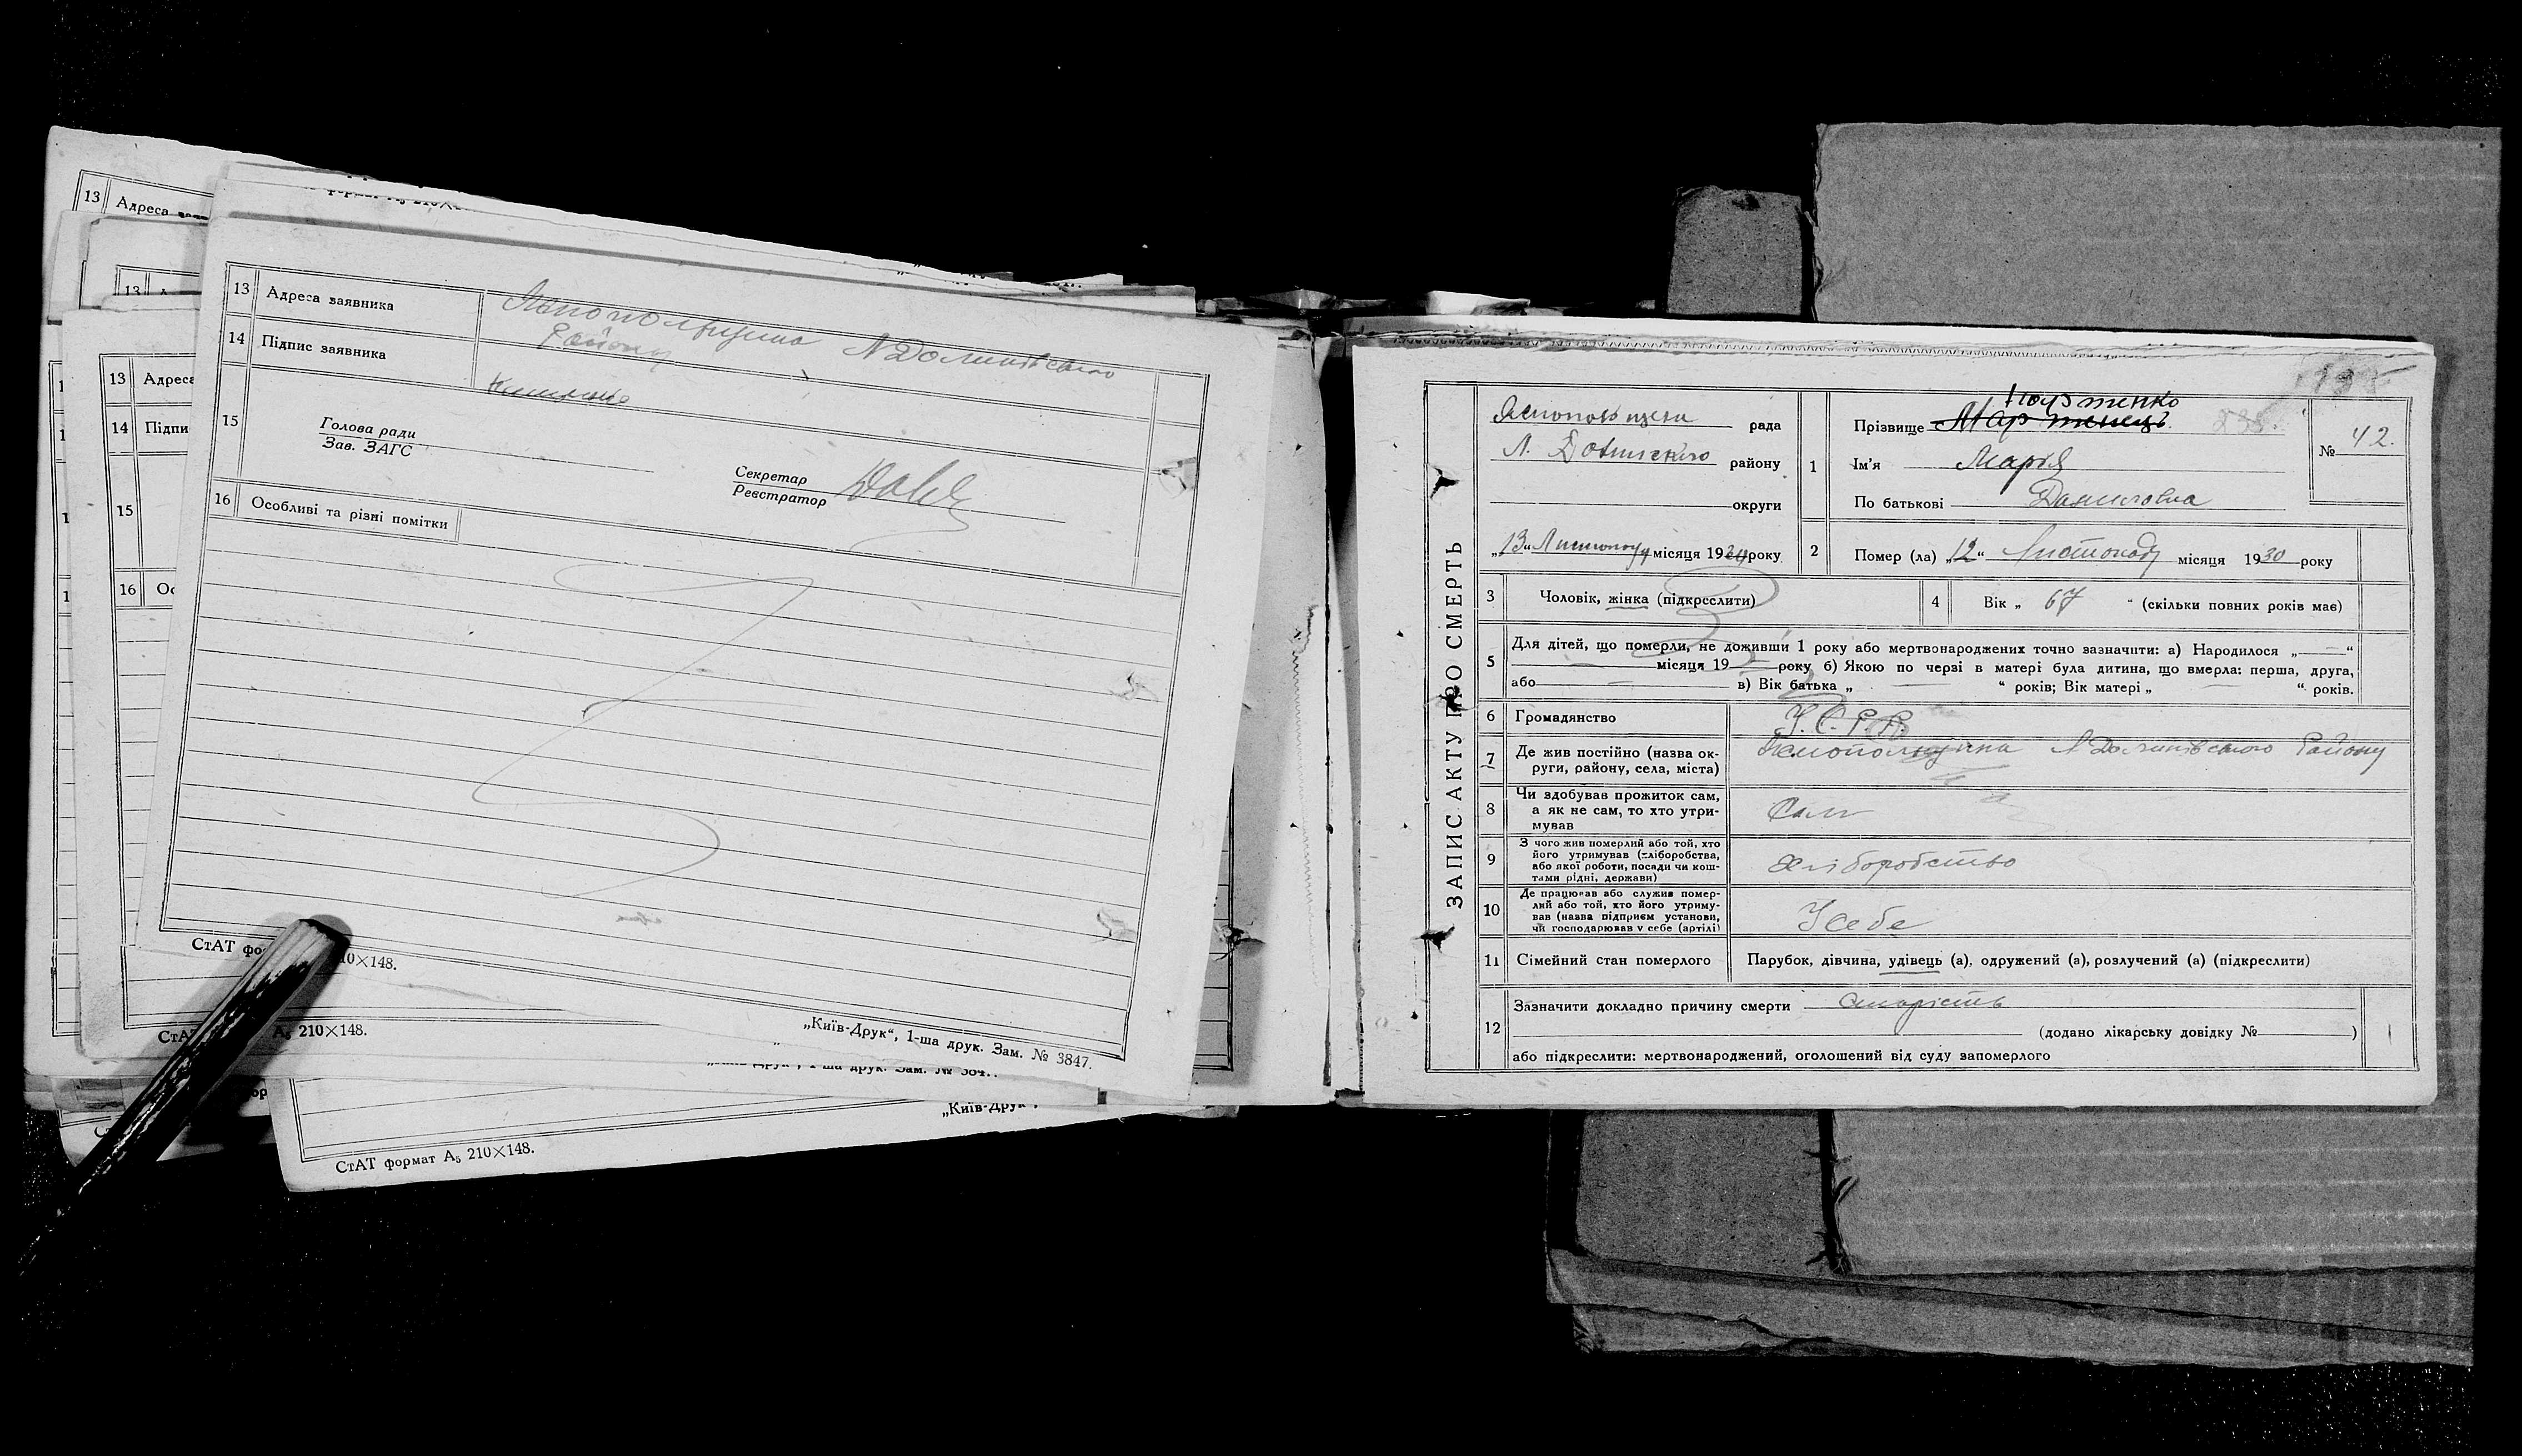 13 Адреса
13
13 Адреса
14 Підпи
15
16 Ос
13 Адреса заявника
району
14 Підпис заявника
15 Голова ради
Зав. ЗАГС
Секретар
Реєстратор
16 Особливі та різні помітки
СтАТ фо 10×148.
„Київ-Друк“, 1-ша друк. Зам. № 3847.
СтА А₅ 210×148.
„Київ-Друк“,
СтАТ формат А₅ 210×148.
ЗАПИС АКТУ ПРО СМЕРТЬ
рада
району
округи
„13“ Листопаду місяця 19 року
1 Прізвище
Ім'я Марія
По батькові Даниловна
№ 42.
2 Помер (ла) „12“ Листопаду місяця 1930 року
3 Чоловік, жінка (підкреслити)
4 Вік „ 67 “ (скільки повних років має)
5 Для дітей, що померли, не доживши 1 року або мертвонароджених точно зазначити: а) Народилося „ “
місяця 19 року б) Якою по черзі в матері була дитина, що вмерла: перша, друга,
або в) Вік батька „ “ років; Вік матері „ “ років.
6 Громадянство У.С.Р.Р.
7 Де жив постійно (назва ок-
руги, району, села, міста)
Району
8 Чи здобував прожиток сам,
а як не сам, то хто утри-
мував
Сам
9 З чого жив померлий або той, хто
його утримував (хліборобства,
або якої роботи, посади чи кош-
тами рідні, держави)
Хліборобство
10 Де працював або служив помер-
лий або той, хто його утриму-
вав (назва підприєм установи,
чи господарював у себе (артілі)
У себе
11 Сімейний стан померлого Парубок, дівчина, удівець (а), одружений (а), розлучений (а) (підкреслити)
12 Зазначити докладно причину смерти старість
(додано лікарську довідку № )
або підкреслити: мертвонароджений, оголошений від суду запомерлого